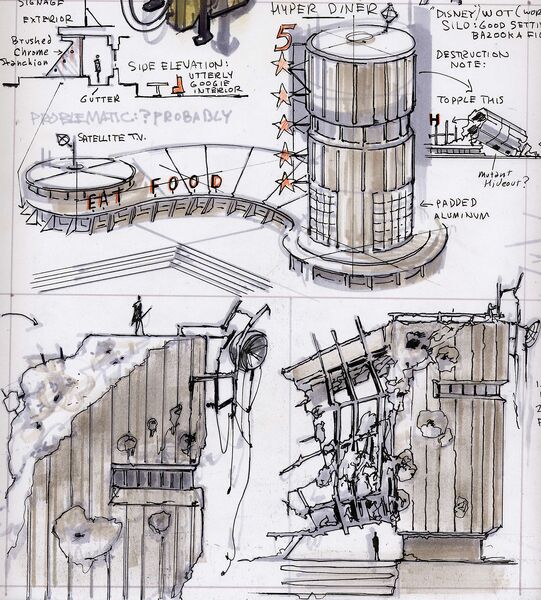 SIGNAGE
EXTERIOR
Brushed
Chrome
Stanchion
GUTTER
SIDE ELEVATION:
UTTERLY
GOOGIE
INTERIOR
PROBLEMATIC:? PROBABLY
SATELLITE T.V.
EAT FOOD
HYPER DINER
5
PADDED
ALUMINUM
"DISNEY/WOT (WOR
SILO: GOOD SETTI
BAZOOKA FI
DESTRUCTION
NOTE:
TOPPLE THIS
H
Mutant
Hideout?